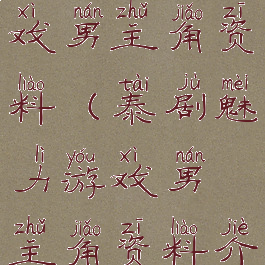 xì nán zhǔ jiǎo zī
戏男主角资
liào tài jù mèi
料（泰剧魅
lì yóu xì nán
力游戏男
zhǔ jiǎo zī liào jiè
主角资料介